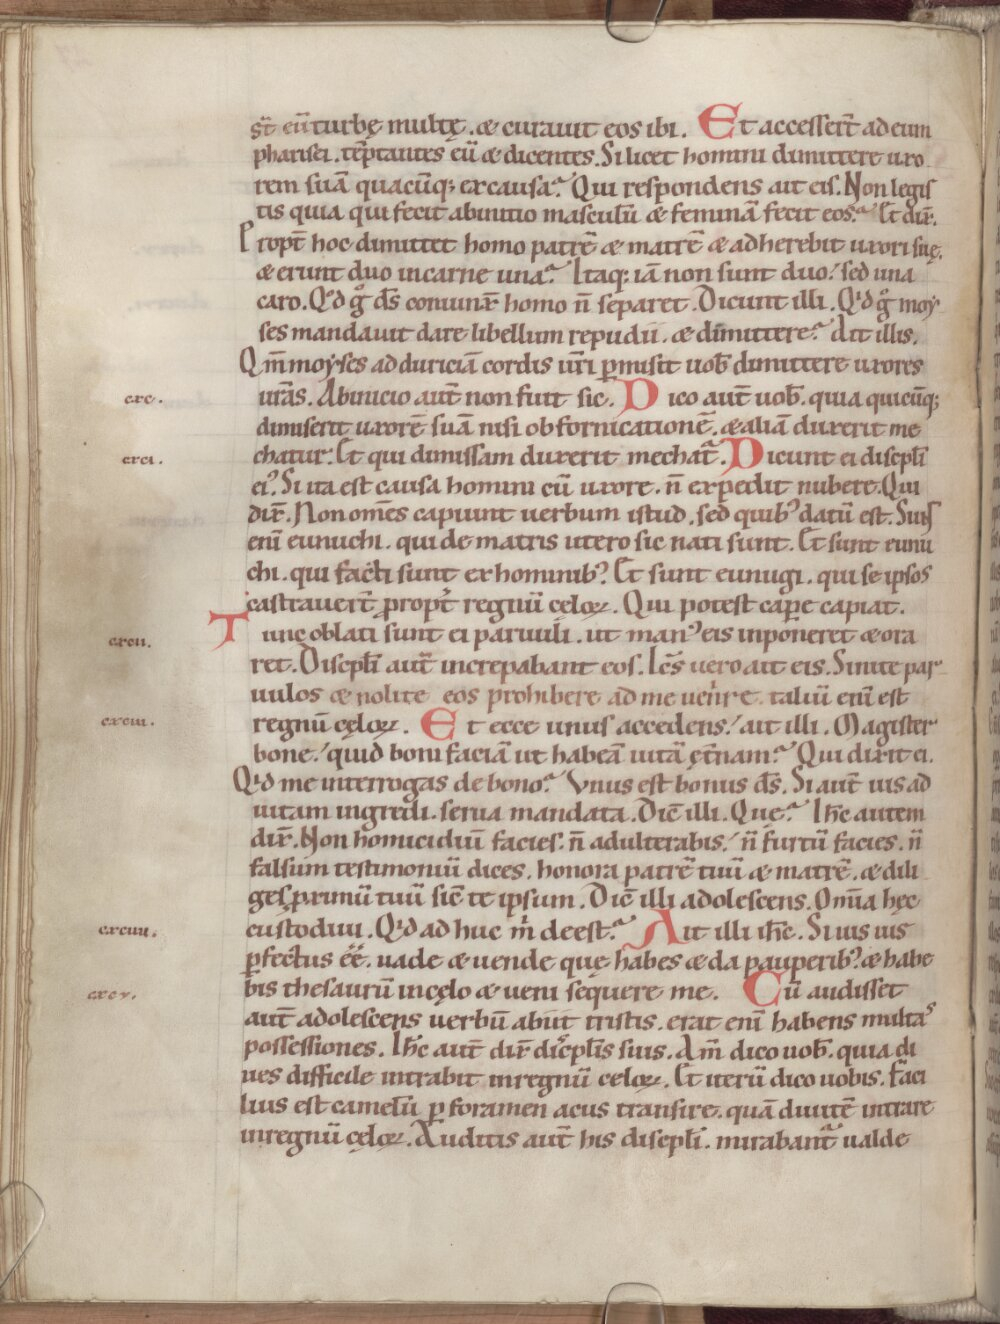 st̄ eū turbę multę. & curauit eos ibi. Et accesser̄t ad eum
pharisei. tēptantes eū & dicentes. Si licet homini dimittere uxo
rem suā quacūq; ex causa? Qui respondens ait eis. Non legis
tis quia qui fecit abinitio masculū & feminā fecit eos? Et dix̄.
Propt̄ hoc dimittet homo patrē & matrē & adherebit uxori suę.
& erunt duo incarne una? Itaq; iā non sunt duo. sed una
caro. Qd̓ g̊ d̄s coniunx̄ homo n̄ separet. Dicunt illi. Qd̓ g̊ moy
ses mandauit dare libellum repudii. & dimittere? Ait illis.
Qm̄ moyses ad duriciā cordis ur̄i pmisit uob̄ dimittere uxores
urās. Abinicio aut̄ non fuit sic. Dico aut̄ uob̄. quia quicūq;
exc.
dimiserit uxorē suā nisi ob fornicationē. & aliā duxerit me
chatur. Et qui dimissam duxerit mechat̄. Dicunt ei discpl̄i
exci.
ei'. Si ita est causa homini cū uxore. n̄ expedit nubere. Qui
dix̄. Non om̄es capiunt uerbum istud. sed quib' datū est. Sunt
enī eunuchi. qui de matris utero sic nati sunt. Et sunt eunu
chi. qui facti sunt ex hominib'. Et sunt eunugi. qui se ipsos
castrauer̄t propt̄ regnū cęloꝝ. Qui potest capere capiat.
Tunc oblati sunt ei paruuli. ut man' eis inponeret & ora
excii.
ret. Discpl̄i aut̄ increpabant eos. Ic̄s uero ait eis. Sinite par
uulos & nolite eos prohibere ad me uenire. taliū enī est
regnū cęloꝝ. Et ecce unus accedens. ait illi. Magister
exciii.
bone. quid boni faciā ut habeā uitā ęt̄nam? Qui dixit ei.
Qd̓ me interrogas de bono? Vnus est bonus d̄s. Si aut̄ uis ad
uitam ingredi. serua mandata. Dic̄ illi. Quę? Ih̄c autem
dix̄. Non homicidiū facies. n̄ adulterabis. n̄ furtū facies. n̄
falsum testimoniū dices. honora patrē tuū & matrē. & dili
ges proximū tuū sic̄ te ipsum. Dic̄ illi adolescens. Omīa hęc
custodiui. Qd̓ ad huc m̄ deest? Ait illi ih̄c. Si uis
exciiii.
pfectus ēē. uade & uende quę habes & da pauperib' & habe
bis thesaurū incęlo & ueni sequere me. Cū audisset
excv.
aut̄ adolescens uerbū abiit tristis. erat enī habens multas
possessiones. Ih̄c aut̄ dix̄ discpl̄is suis. Am̄ dico uob̄. quia di
ues difficile intrabit inregnū celoꝝ. Et iterū dico uobis. faci
lius est camelū p foramen acus transire. quā diuitē intrare
inregnū cęloꝝ. Auditis aut̄ his discpl̄i. mirabant̄ ualde